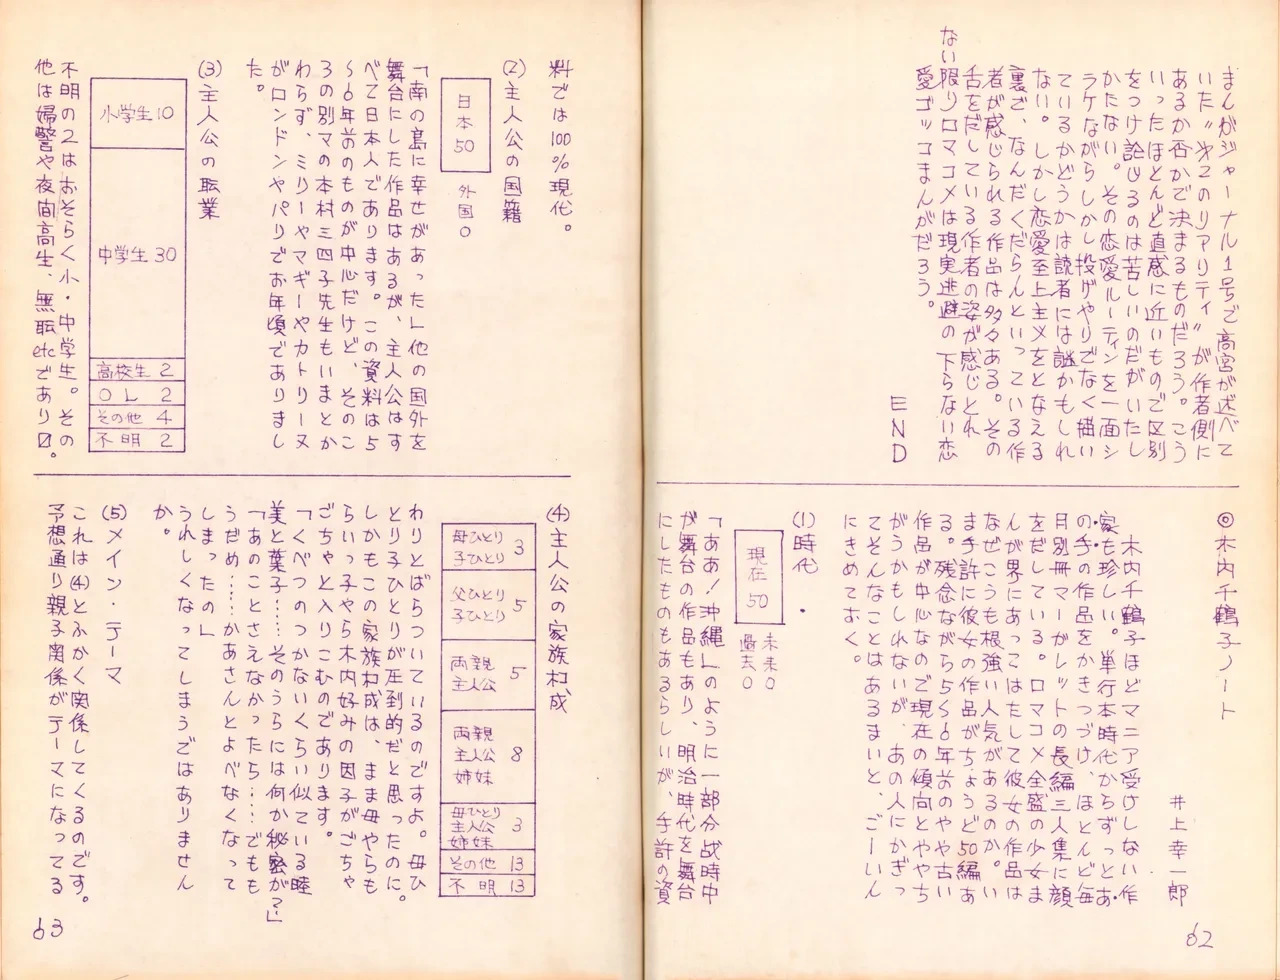 まんがジャーナル1号で高宮が述べて
いた〝第2のリアリティ〟が作者側に
あるか否かで決まるものだろう。こう
いったほとんど直感に近いもので区別
をつけ論じるのは苦しいのだがいたし
かたない。その恋愛ルーティンを一面シ
ラケながらしかし投げやりでなく描い
ているかどうかは読者には謎かもしれ
ない。しかし恋愛至上主メをとなえる
裏で、なんだくだらんといっている作
者が感じられる作品は多々ある。その
舌をだしている作者の姿が感じとれ
ない限りロマコメは現実逃避の下らない恋
愛ゴッコまんがだろう。
END
◎木内千鶴子ノート
井上幸一郎
木内千鶴子ほどマニア受けしない作
家も珍しい。単行本時代からずっとあ
の手の作品をかきつづけ、ほとんど毎
月別冊マーガレットの長編三人集に顔
をだしている。ロマコメ全盛の少女ま
んが界にあってはたして彼女の作品は
なぜこうも根強い人気があるのか。い
ま手許に彼女の作品がちょうど50編あ
る。残念ながら5〜6年前のやや古い
作品が中心なので現在の傾向とややち
がうかもしれないが、あの人にかぎっ
てそんなことはあるまいと、ごーいん
にきめておく。
(1)時代
現在50
未来0
過去0
「ああ！沖縄」のように一部分戦時中
が舞台の作品もあり、明治時代を舞台
にしたものもあるらしいが、手許の資
62
料では100%現代。
(2)主人公の国籍
日本50
外国0
「南の島に幸せがあった」他の国外を
舞台にした作品はあるが、主人公はす
べて日本人であります。この資料は5
〜6年前のものが中心だけど、そのこ
ろの別マの本村三四子先生もいまとか
わらず、ミリーやマギーやカトリーヌ
がロンドンやパリでお年頃でありまし
た。
(3)主人公の職業
小学生10
中学生30
高校生 2
OL 2
その他 4
不明 2
不明の2はおそらく小・中学生。その
他は婦警や夜間高生、無職etcであり〼。
(4)主人公の家族构成
母ひとり
子ひとり 3
父ひとり
子ひとり 5
両親
主人公 5
両親
主人公
姉妹 8
母ひとり
主人公
姉妹 3
その他 13
不明 13
わりとばらついているのですよ。母ひ
とり子ひとりが圧到的だと思ったのに。
しかもこの家族构成は、まま母やらも
らいっ子やら木内好みの因子がごちゃ
ごちゃと入りこむのであります。
「くべつのつかないくらい似ている睦
美と葉子……そのうらには何か秘密が？」
「あのことさえなかったら……でもも
うだめ……かあさんとよべなくなって
しまったの」
うれしくなってしまうではありません
か。
(5)メイン・テーマ
これは(4)とふかく関係してくるのです。
予想通り親子関係がテーマになってる
63